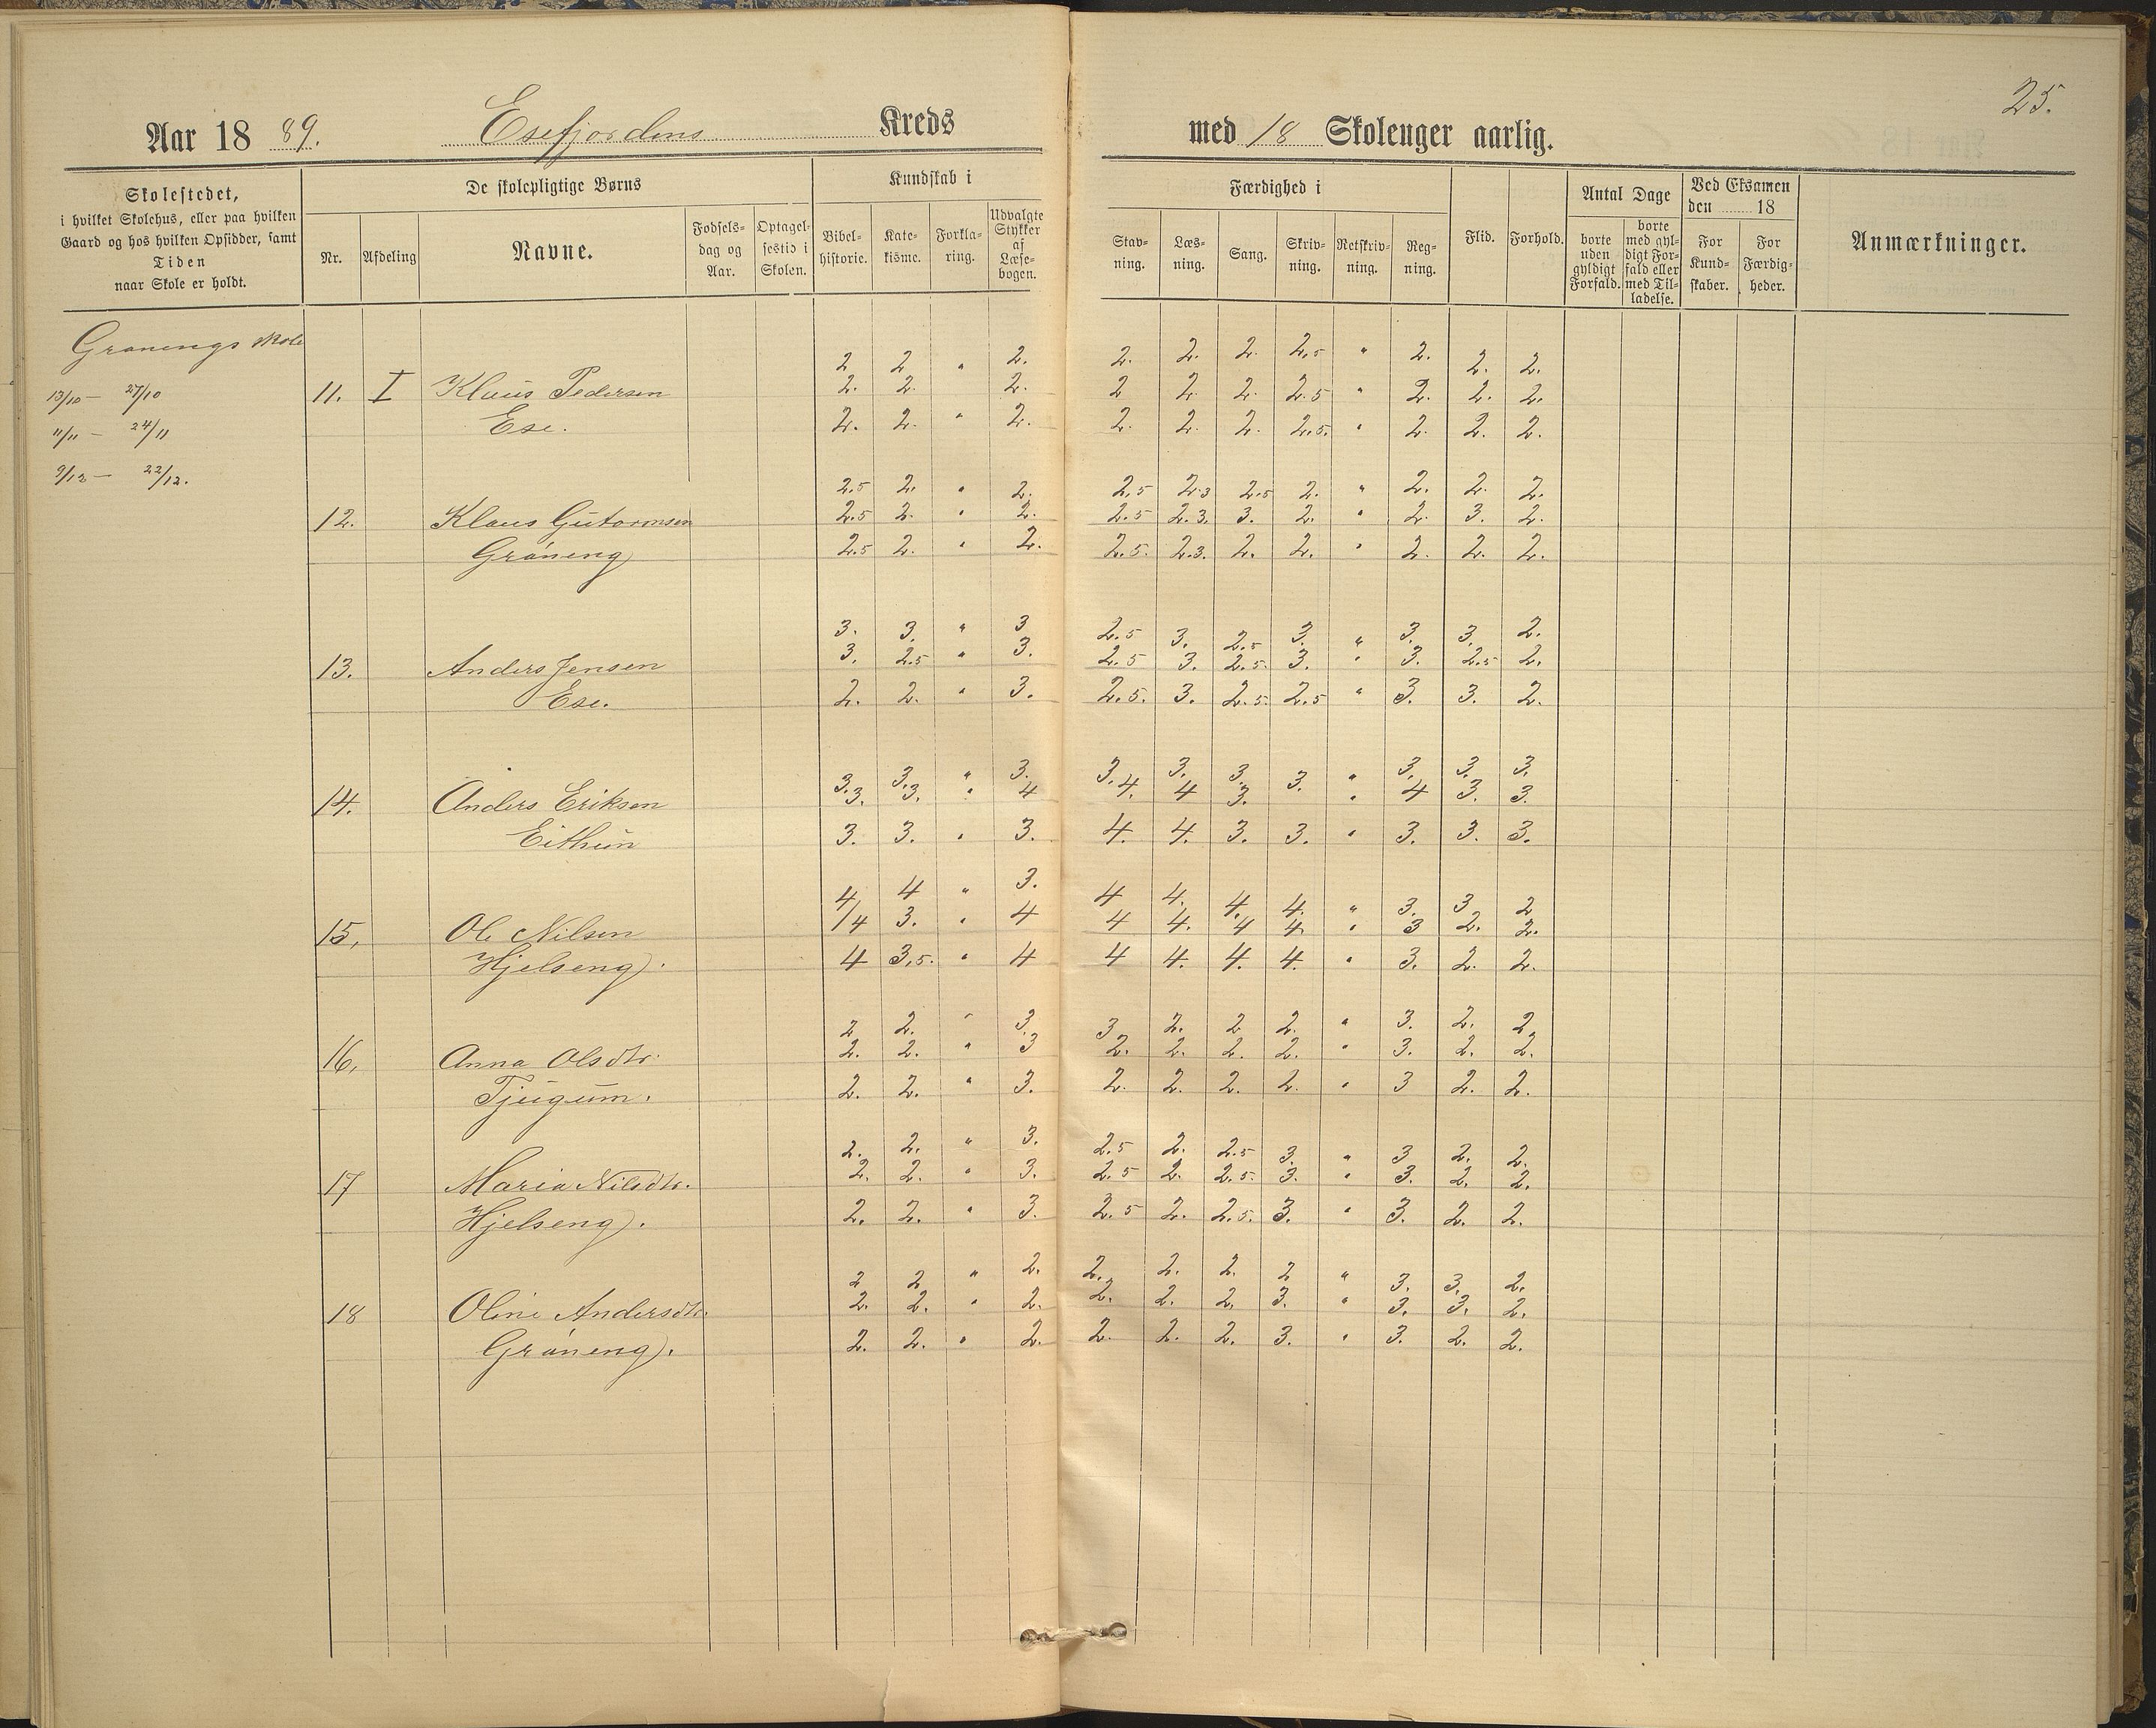 25.
Aar 18 89. Esefjordens Kreds med 18 Skoleuger aarlig.
Skolestedet,
i hvilket Skolehus, eller paa hvilken
Gaard og hos hvilken Opsidder, samt
Tiden
naar Skole er holdt.
De skolepligtige Børns
Nr. Afdeling Navne.
Fødsels-
dag og
Aar.
Optagel-
sestid i
Skolen.
Kundskab i
Bibel-
historie.
Kate-
kisme.
Forkla-
ring.
Udvalgte
Stykker
af
Læse-
bogen.
Færdighed i
Stav-
ning.
Læs-
ning.
Sang.
Skriv-
ning.
Retskriv-
ning.
Reg-
ning.
Flid.
Forhold.
Antal Dage
borte
uden
gyldigt
Forfald.
borte
med gyl-
digt For-
fald eller
med Til-
ladelse.
Ved Eksamen
den 18
For
Kund-
skaber.
For
Færdig-
heder.
Anmærkninger.
Grønengs skole
2 2 " 2. 2. 2. 2. 2,5 " 2. 2. 2.
13/10 — 27/10 11. I Klaus Pedersen 2. 2. 2. 2 2. 2. 2.5 " 2. 2. 2.
11/11 — 24/11 Ese. 2. 2. " 2. 2. 2. 2. 2.5. " 2. 2. 2.
9/12 — 22/12.
2.5 2. " 2. 2.5 2.3 2.5 2. " 2. 2. 2.
12. Klaus Gutormsen 2.5 2. " 2. 2.5 2.3. 3. 2. " 2. 3. 2.
Grøneng 2.5 2. " 2. 2.5. 2.3. 2. 2. " 2. 2. 2.
3. 3. " 3 2.5 3. 2.5 3. " 3. 3. 2.
13. Anders Jensen 3. 2.5 " 3. 2.5 3. 2.5. 3. " 3. 2.5 2.
Ese. 2. 2. " 3. 2.5. 3. 2.5. 2.5 " 3. 3. 2.
3. 3. " 3. 3. 3. 3. 3. " 3. 3. 3.
14. Anders Eriksen 3. 3. " 4 4. 4 3. " 4 3. 3.
Eithun 3. 3. " 3. 4. 4. 3. 3. " 3. 3. 3.
4 4 " 3. 4 4. 4. 4. " 3. 3 2
15. Ole Nilsen 4 3. " 4 4 4. 4 4. " 3 2. 2.
Hjelseng. 4 3,5. " 4 4 4. 4. 4. " 3. 2. 2.
2. 2. " 3. 3 2. 2 2. " 3. 2. 2.
16. Anna Olsdtr. 2. 2. " 3 2. 2. 2. 2. " 3. 2. 2.
Tjugum. 2. 2. " 3. 2. 2. 2. 2. " 3 2. 2.
2. 2. " 3. 2.5 2. 2.5 3. " 3 2. 2.
17 Maria Nilsdtr. 2. 2. " 3. 2.5 2. 2.5. 3. " 3. 2. 2.
Hjelseng. 2. 2. " 3. 2.5 2. 2.5. 3. " 3. 2. 2.
2 2 " 2. 2. 2. 2. 2 " 3. 3. 2.
18 Oline Andersdtr. 2. 2. " 2. 2. 2. 2. 3. " 3. 3. 2.
Grøneng. 2. 2. " 2. 2. 2. 2. 3. " 3. 2. 2.